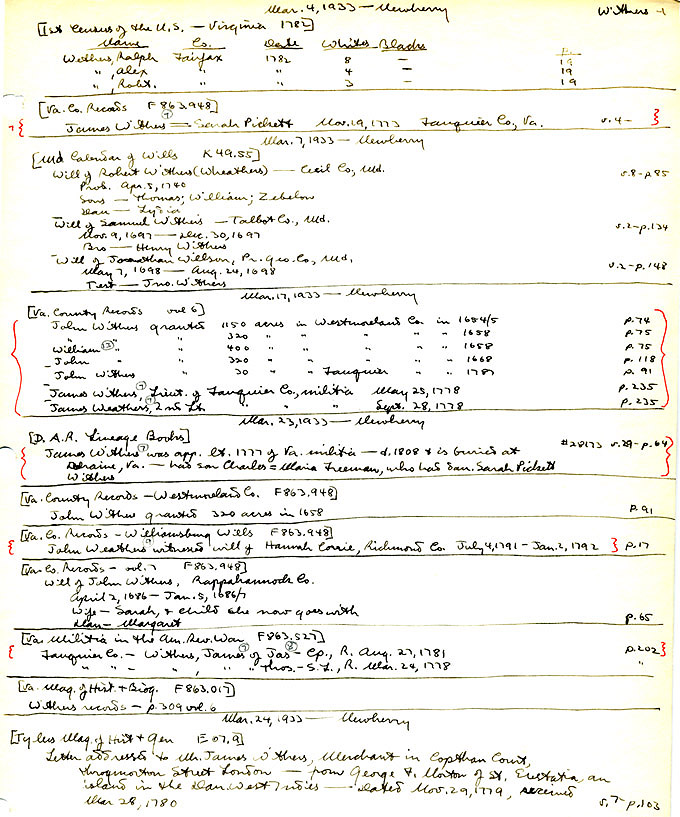 Mar. 4, 1933 — Newberry
Withers -1
[1st Census of the U.S. — Virginia 1782]
Name Co. Date Whites Blacks p.
Withers, Ralph Fairfax 1782 8 — 19
", Alex " " 4 — 19
", Robt. " " 3 — 19
[Va. Co. Records F863.948]
James Withers (7) = Sarah Pickett Nov. 19, 1773 Fauquier Co., Va. v. 4 -
Mar. 7, 1933 — Newberry
[Md Calendar of Wills K49.55]
Will of Robert Withers (Wheathers) — Cecil Co., Md. v.8-p.85
Prob. Apr. 5, 1740
Sons — Thomas; William; Zebelon
Dau — Lydia
Will of Samuel Withers — Talbot Co., Md. v.2-p.134
Nov. 9, 1697 — Dec. 30, 1697
Bro — Henry Withers
Will of Jonathan Willson, Pr. Geo. Co., Md. v.2-p.148
May 7, 1698 — Aug. 24, 1698
Test — Jno. Withers
Mar. 17, 1933 — Newberry
[Va. County Records vol 6]
John Withers granted 1150 acres in Westmoreland Co. in 1654/5 p.74
" " " 320 " " " " " 1658 p.75
William (12) " " 400 " " " " " 1658 p.75
John " " 320 " " " " " 1668 p.118
John Withers " 30 " " Fauquier " " 1787 p. 91
James Withers, (7) Lieut. of Fauquier Co., militia May 25, 1778 p.235
James Weathers, (7) 2nd Lt. " " " Sept. 28, 1778 p.235
Mar. 23, 1933 — Newberry
[D.A.R. Lineage Books]
James Withers (7) was app. Lt. 1777 of Va. militia — d. 1808 & is buried at #28173 v.29-p.64
Lorraine, Va. — had son Charles = Maria Freeman, who had dau. Sarah Pickett
Withers
[Va. County Records — Westmoreland Co. F863.948]
John Wither granted 320 acres in 1658 p.91
[Va. Co. Records — Williamsburg Wills F863.948]
John Weathers witnessed will of Hannah Corrie, Richmond Co. July 4, 1791 - Jan. 2, 1792 p.17
[Va. Co. Records — vol. 7 F863.948]
Will of John Withers, Rappahannock Co.
April 2, 1686 — Jan. 5, 1686/7
Wife — Sarah, & child she now goes with
Dau — Margaret p.65
[Va. Militia in the Am. Rev. War F863.527]
Fauquier Co. — Withers, James (7) of Jas (8) - Cp., R. Aug. 27, 1781 p.202
" " " - " , " " Thos. - S.L., R. Mar. 24, 1778 "
[Va. Mag. of Hist. & Biog. F863.017]
Withers records — p.309 vol. 6
Mar. 24, 1933 — Newberry
[Tylers Mag. of Hist & Gen E 07.9]
Letter addressed to Mr. James Withers, Merchant in Copthan Court,
Throgmorton Street London — from George F. Norton of St. Eustatia an
island in the Dan. West Indies — dated Nov. 29, 1779, received
Mar 28, 1780 v. 7-p.103